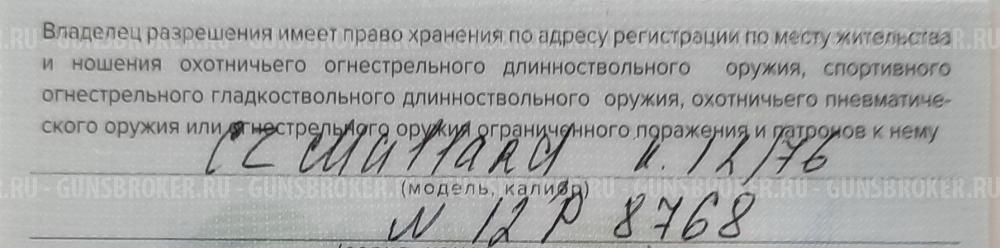 Владелец разрешения имеет право хранения по адресу регистрации по месту жительства
и ношения охотничьего огнестрельного длинноствольного оружия, спортивного
огнестрельного гладкоствольного длинноствольного оружия, охотничьего пневматиче-
ского оружия или огнестрельного оружия ограниченного поражения и патронов к нему
CZ Mallard к. 12/76
(модель, калибр)
N 12P 8768
.RU - GUNSBROKER.RU - GUNSBROKER.RU - GUNSBROKER.RU - GUNSBROKER.RU